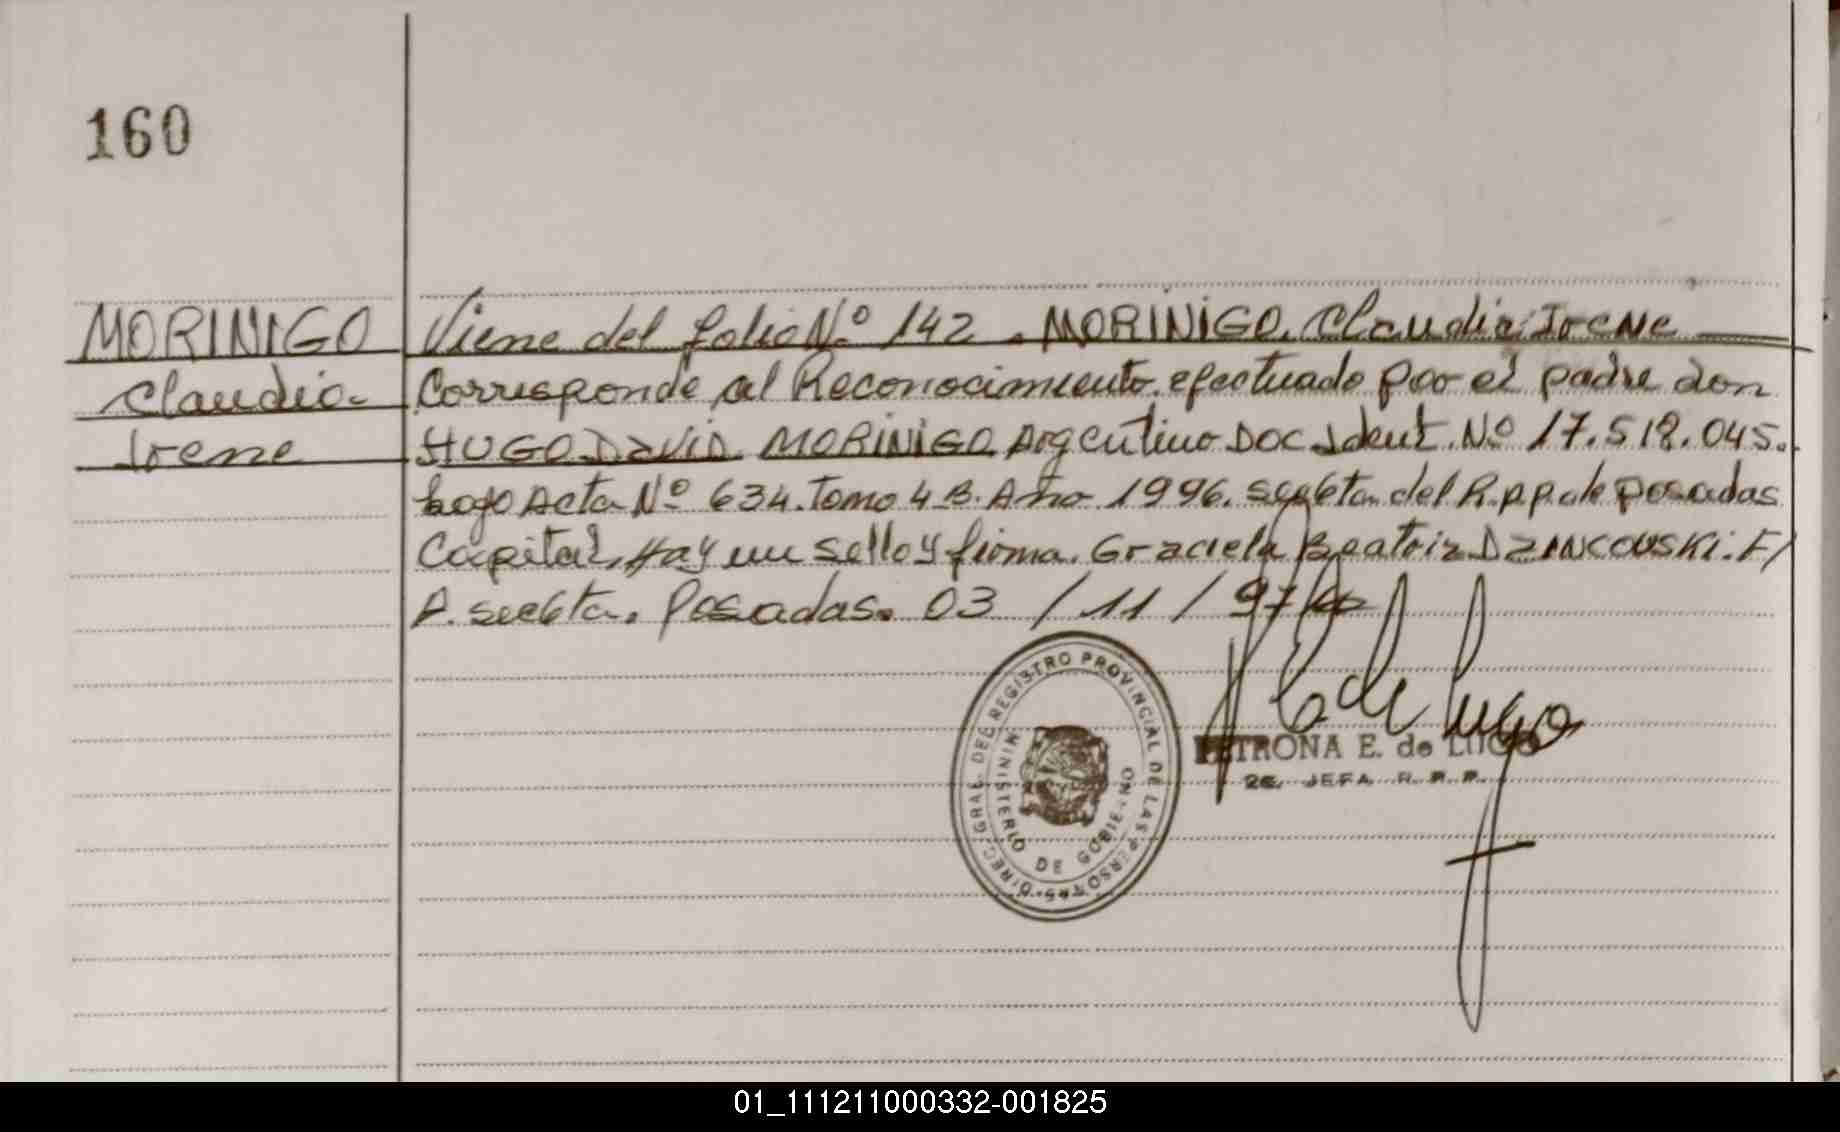 160
MORINIGO
Claudia
Irene
Viene del folio Nº 142. MORINIGO, Claudia Irene
Corresponde al Reconocimiento efectuado por el padre don
HUGO DAVID MORINIGO Argentino Doc Ident. Nº 17.518.045.
bajo Acta Nº 634. Tomo 4 B. Año 1996. del R.p.p. de posadas
Capital, Hay un sello y firma. Graciela Beatriz DZINCOVSKI. F/
A. Posadas. 03 / 11 / 97
DIREC. GRAL. DEL REGISTRO PROVINCIAL DE LAS PERSONAS
MINISTERIO DE GOBIERNO
P. E. de Lugo
PETRONA E. de LUGO
2a. JEFA R. P. P.
01_111211000332-001825